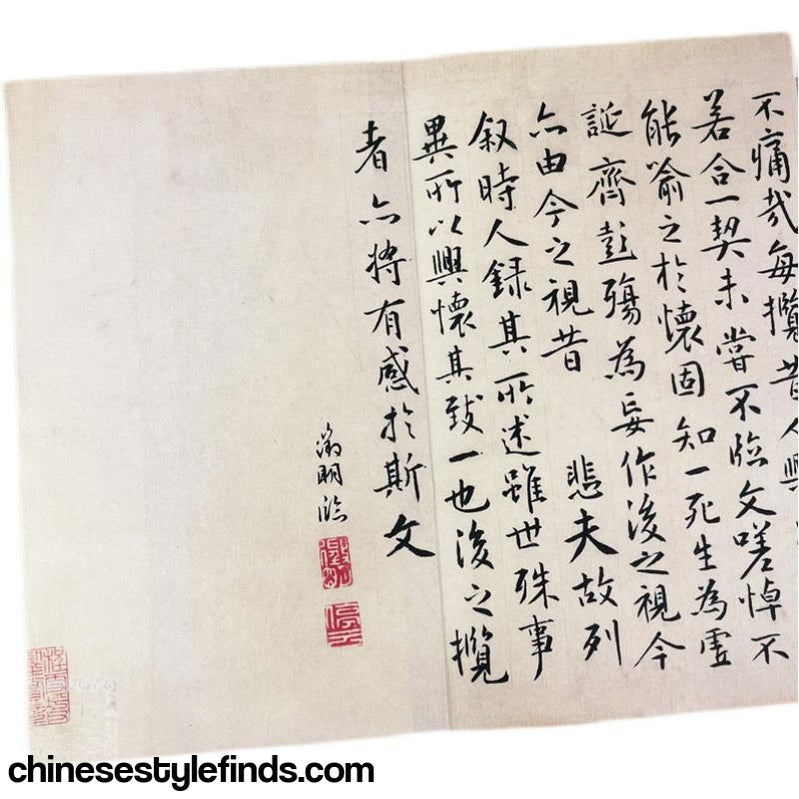 不痛哉每攬昔人興
若合一契未嘗不臨文嗟悼不
能喻之於懷固知一死生為虛
誕齊彭殤為妄作後之視今
亦由今之視昔 悲夫故列
叙時人錄其所述雖世殊事
異所以興懷其致一也後之攬
者亦將有感於斯文
徵明臨
徵明
停雲
chinesestylefinds.com